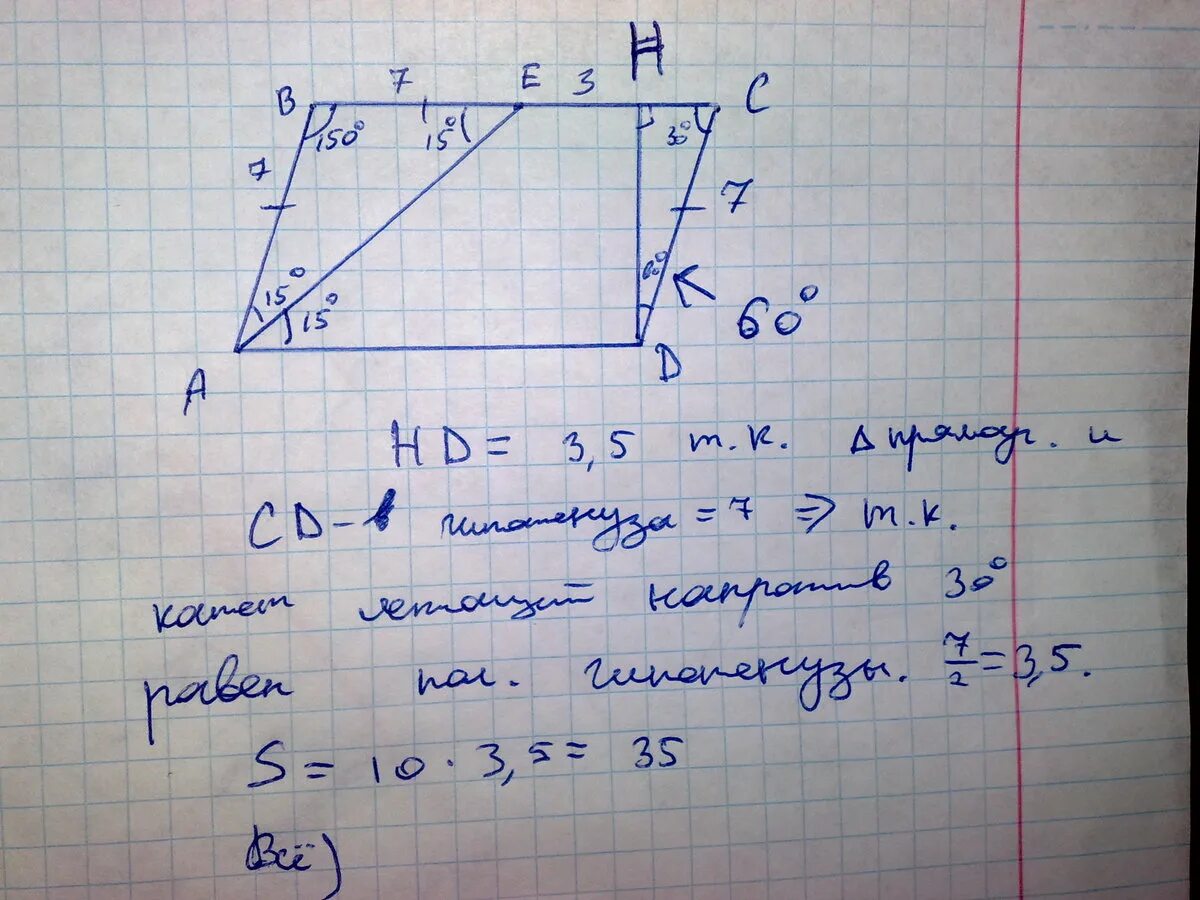 H
B 7 E 3 C
150° 15° 30°
7 7
60°
15° 15° 60°
A D
HD = 3,5 т.к. Δ прямоуг. и
CD - гипотенуза = 7 ⇒ т.к.
катет лежащий напротив 30°
равен пол. гипотенузы. 7/2 = 3,5.
S = 10 · 3,5 = 35
Всё)